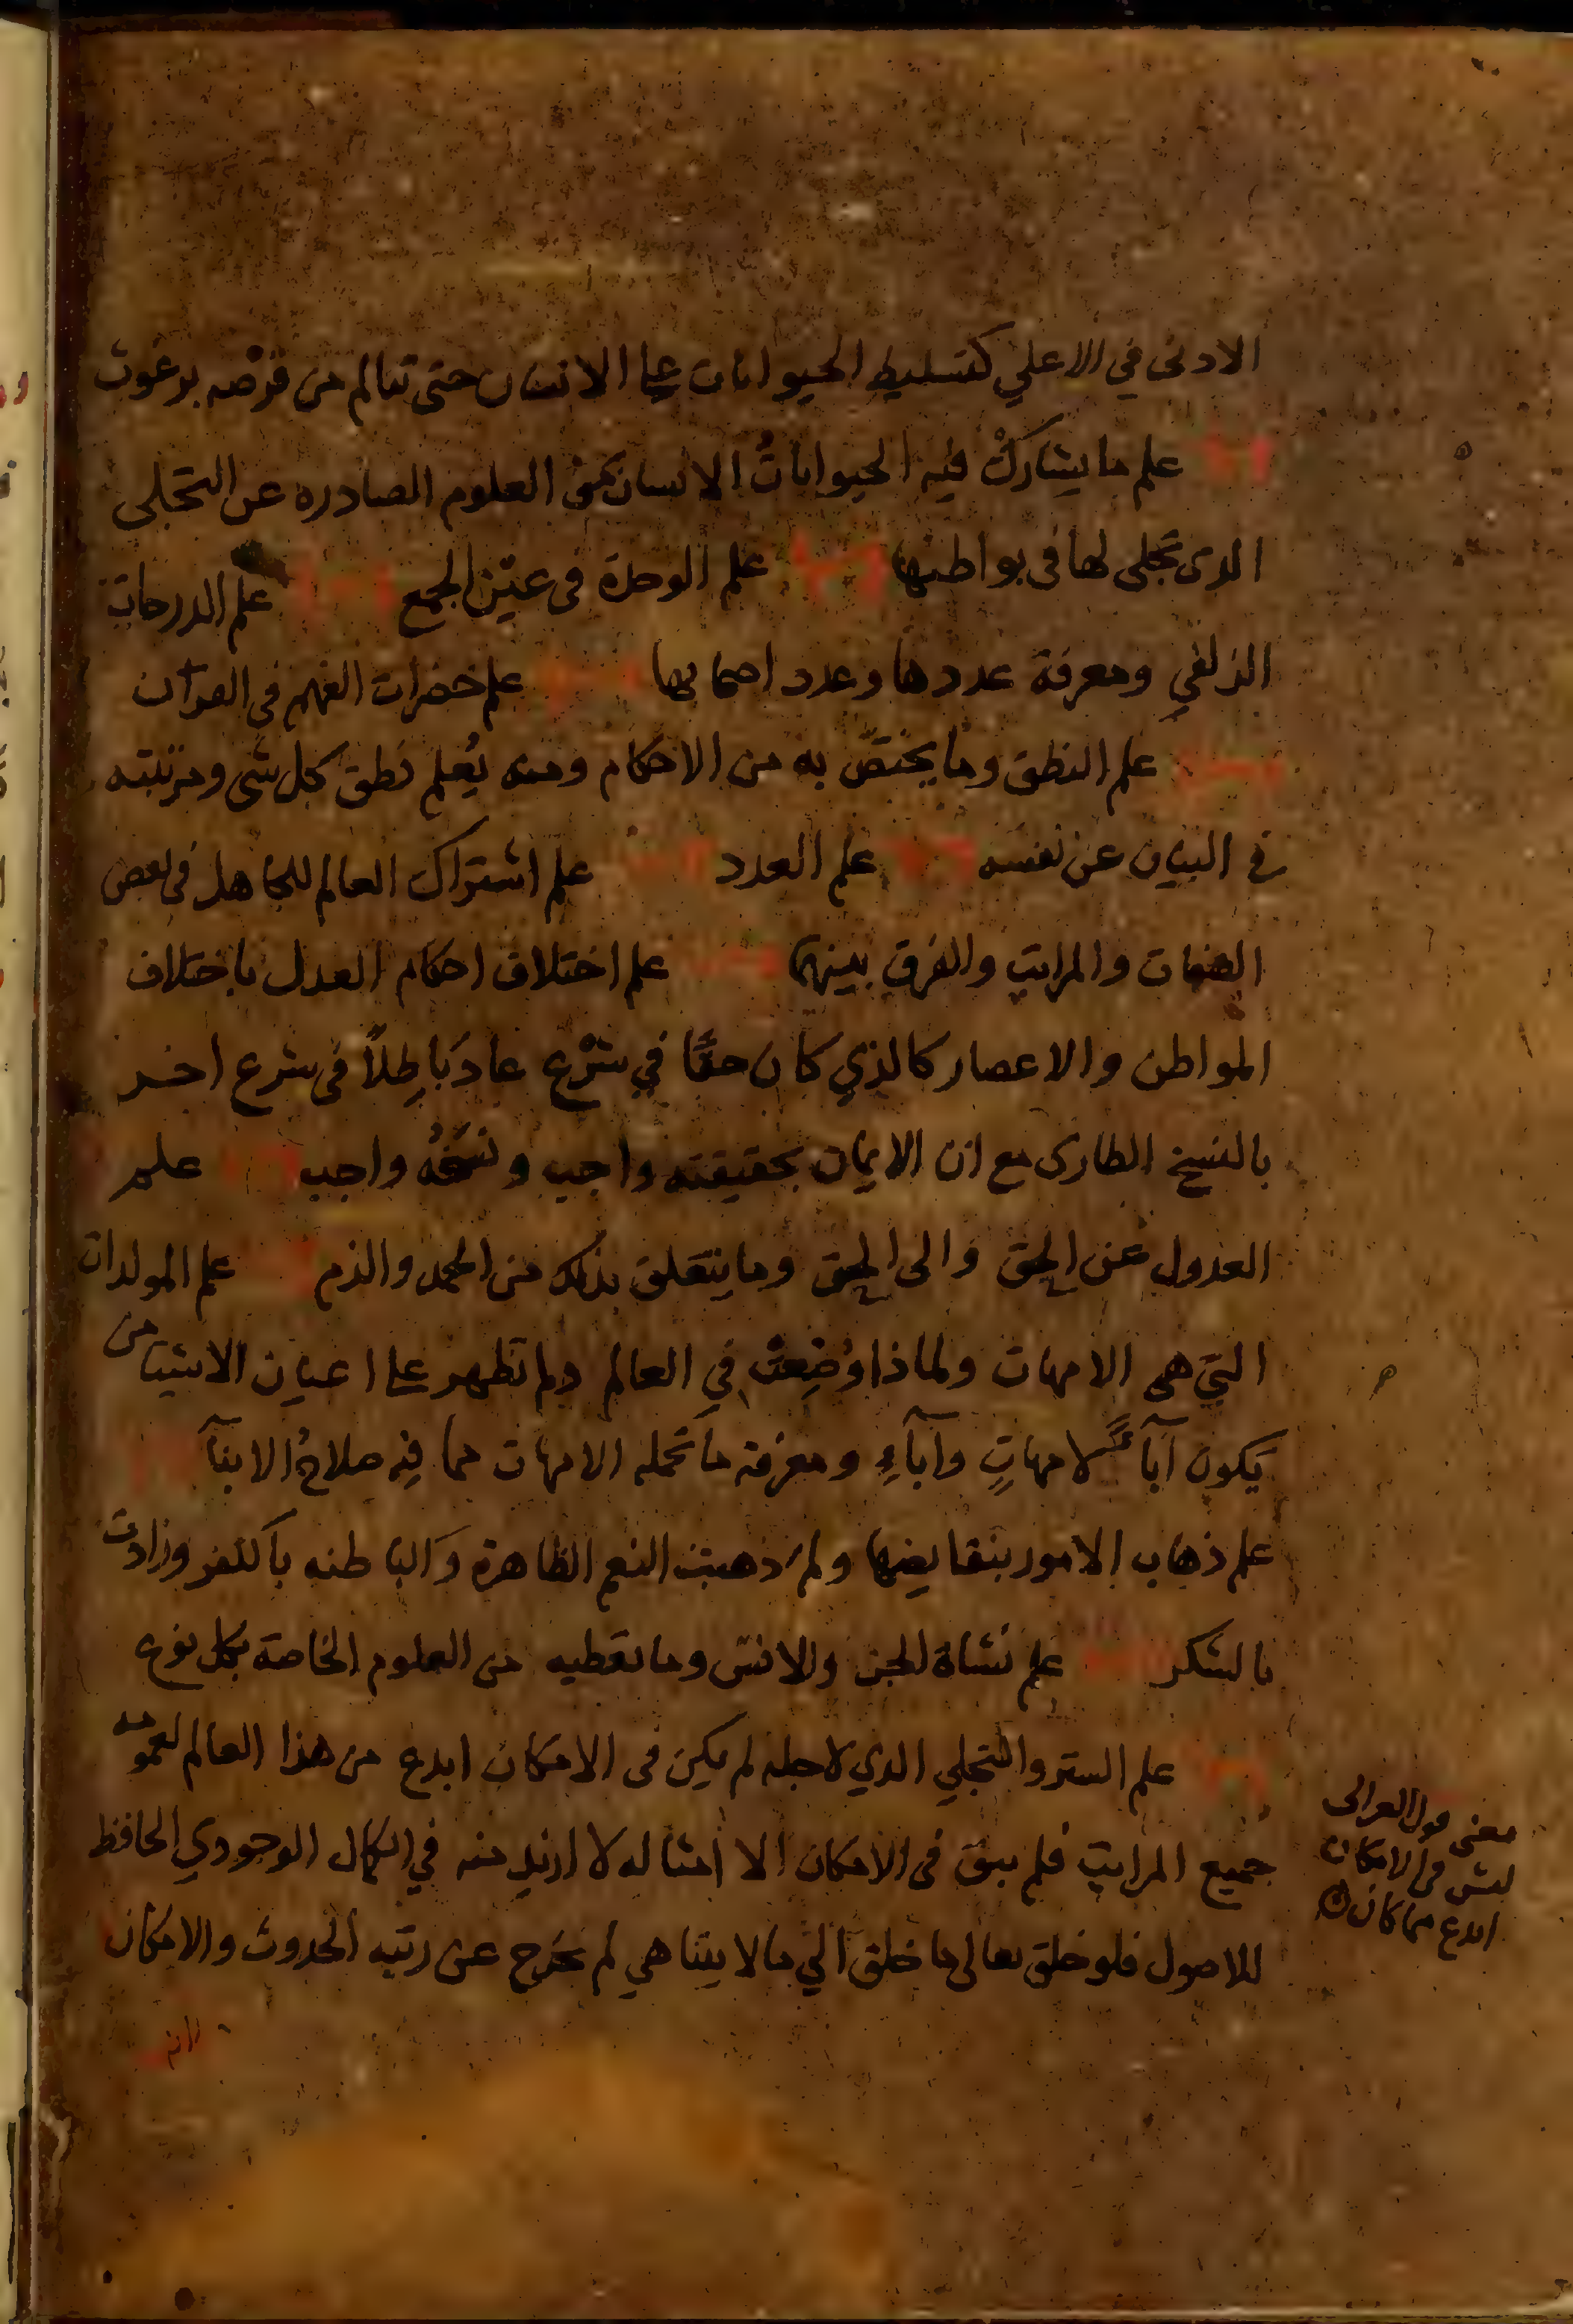 الادنى في الاعلي كتسليط الحيوانات على الانسان حتى تتالم من قرصه برغوث
علم ما يشارك فيه الحيوانات الانسان من العلوم الصادره عن التجلي
الدى تجلى لها فى بواطنها علم الوحدة فى عين الجمع علم الدرجات
الزلفي ومعرفة عددها وعدد اصحابها علم حضرات الفهم في القرآن
علم النطق وما يختص به من الاحكام ومنه يُعلم نطق كل شى ومرتبته
في البيان عن نفسه علم العدد علم اشتراك العالم للجاهل فى بعض
الصفات والمراتب والفرق بينهما علم اختلاف احكام العدل باختلاف
المواطن والاعصار كالذي كان حقًا في شرْع عادَ باطِلاً فى شرع اخر
بالنسخ الطارى مع ان الايمان بحقيقته واجب ونسخُه واجب علم
العدول عن الحق والى الحق وما يتعلق بذلك من الحمد والذم علم المولدات
التي هى الامهات ولماذا وُضِعت في العالم ولم تظهر على اعيان الاشيا من
يكون آباً لامهاتٍ وآباءٍ ومعرفة ما تحمله الامهات مما فيه صلاحُ الابنآ
علم ذهاب الامور بنقايضها ولم ذهبت النعم الظاهرة والباطنه بالكفر وزادت
بالشكر علم نشاة الجن والانس وما تعطيه من العلوم الخاصة بكل نوع
علم الستر والتجلي الدي لاجله لم يكن فى الامكان ابدع من هذا العالم لعمومه
جميع المراتب فلم يبق فى الامكان الا امثاله لا ازيد منه في الكمال الوجودي الحافظ
للاصول فلو خلق تعالى ما خلق الي ما لا يتناهي لم يخرج عن رتبه الحدوث والامكان
معنى قول الغزالى
ليس فى الامكان
ابدع مما كان